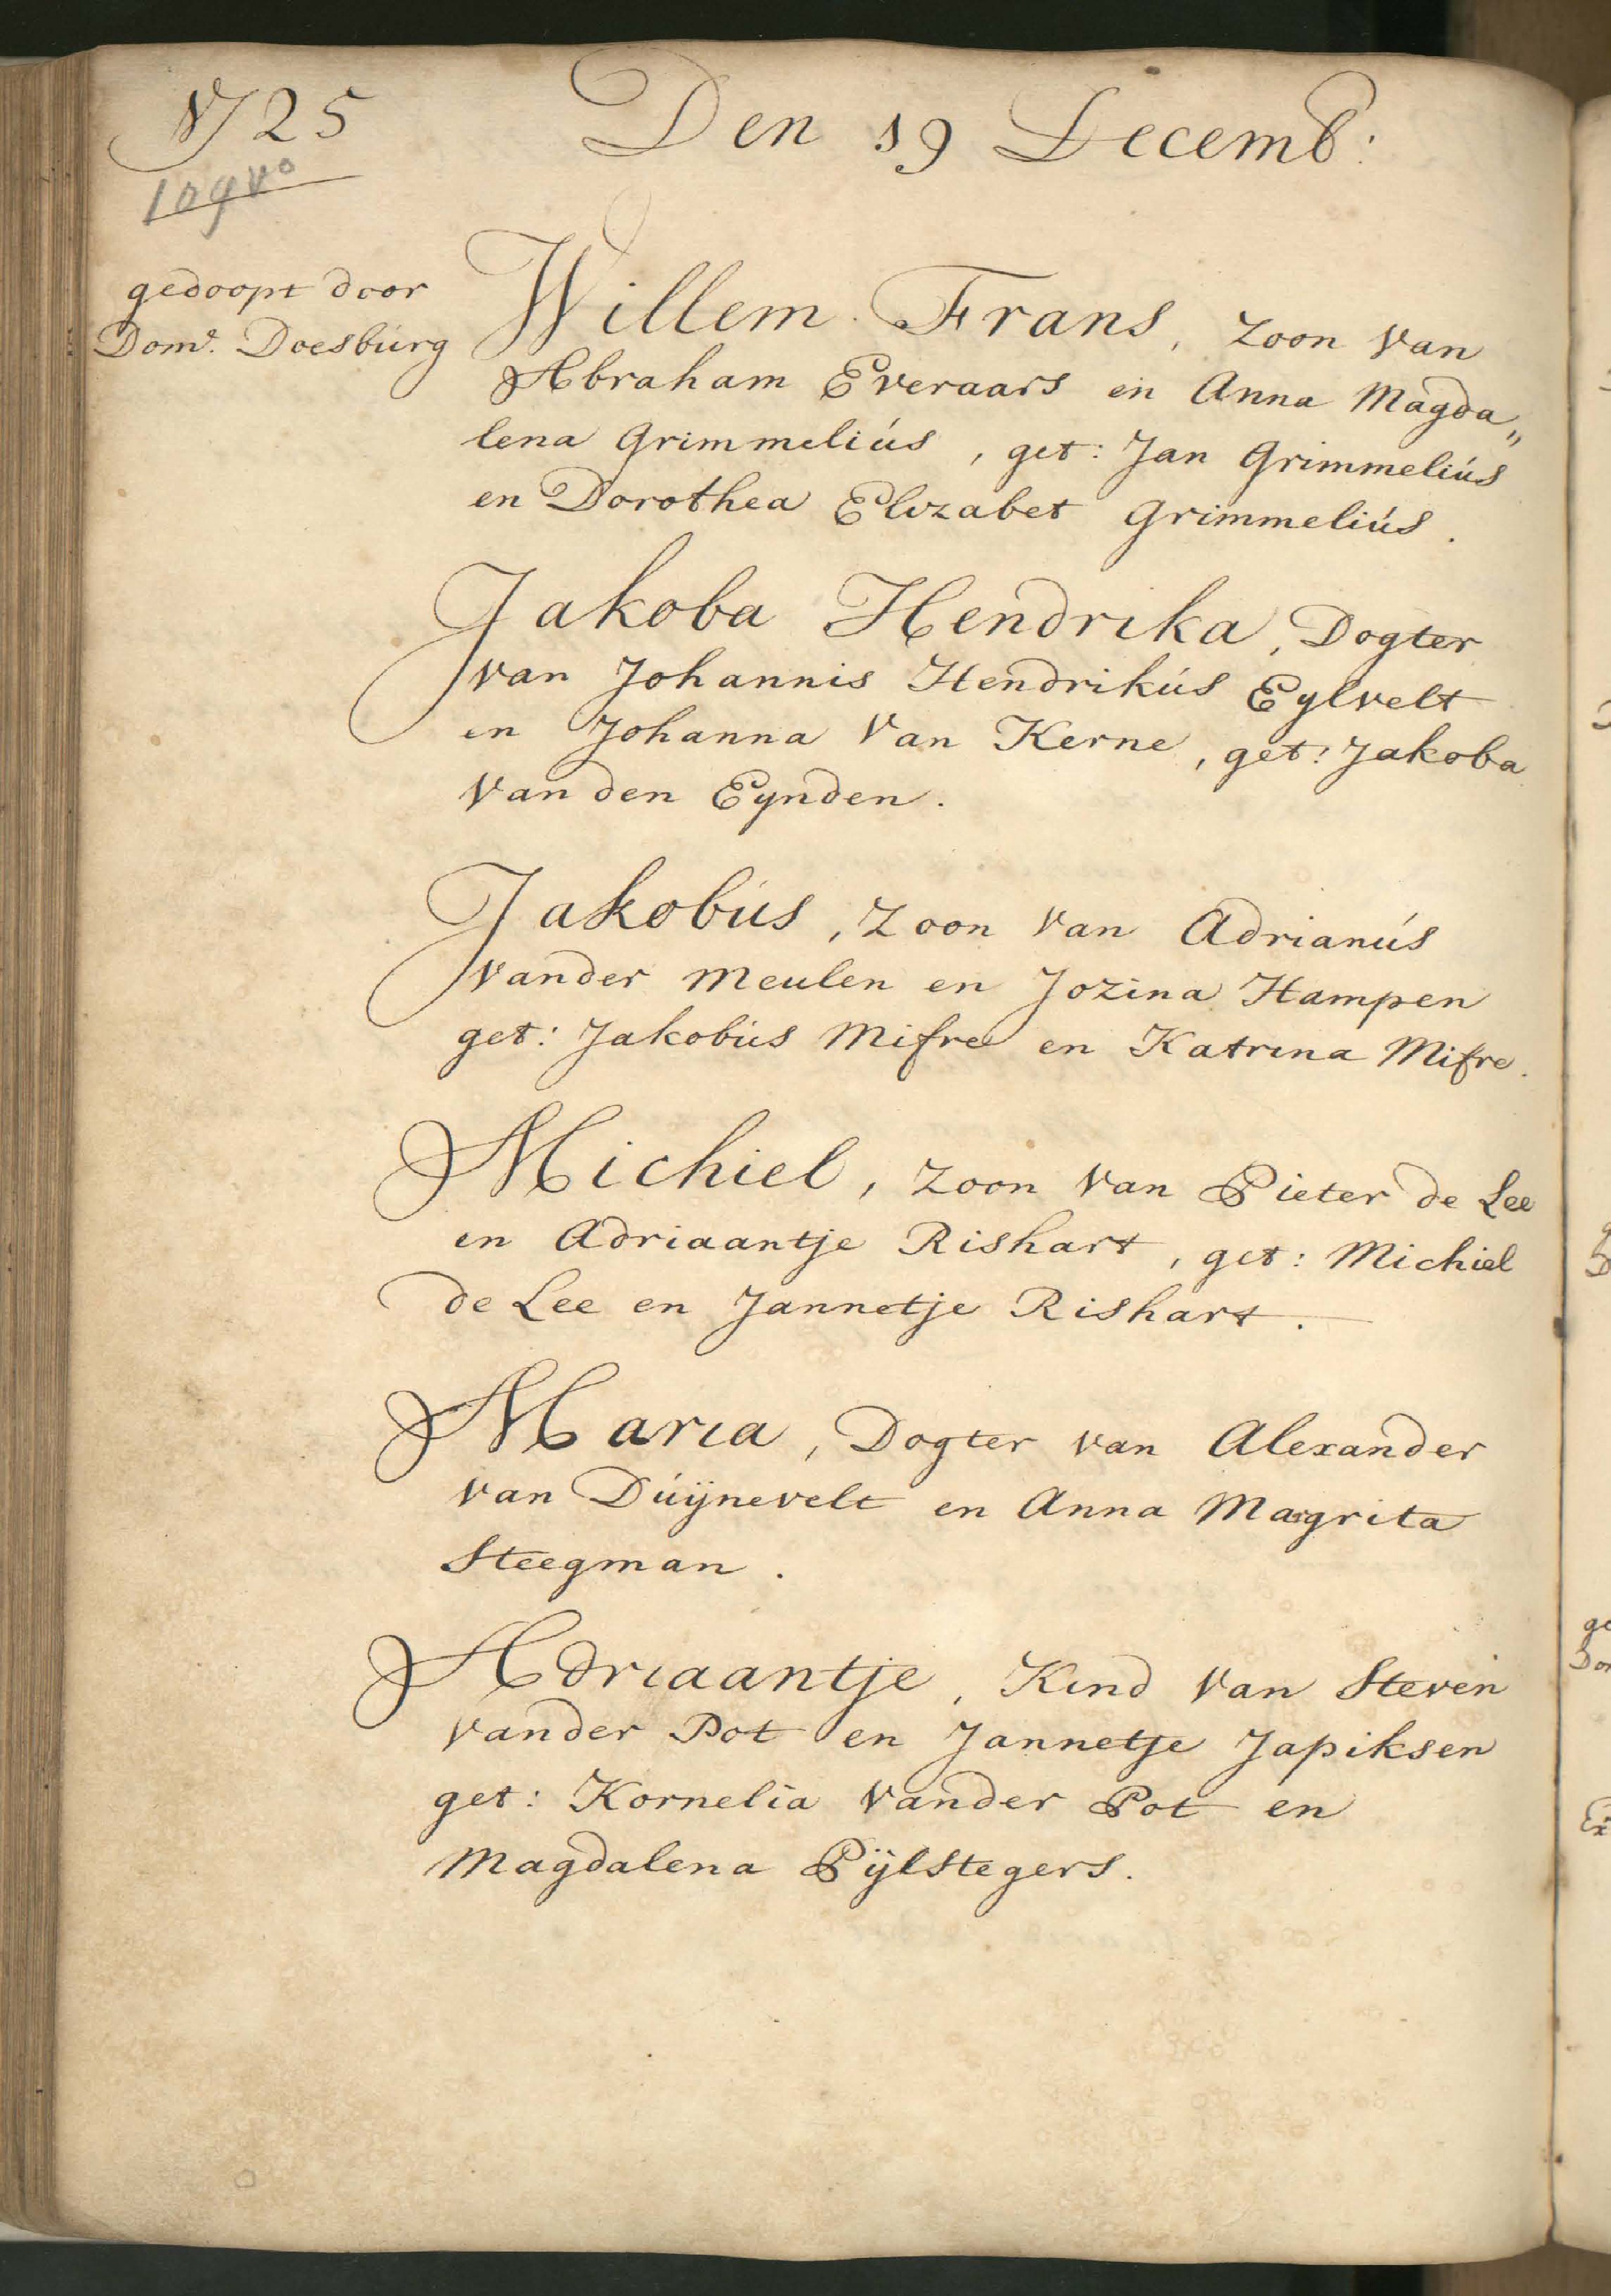 1725
Den 19 Decemb:
109 vo
gedoopt door
Dome. Doesburg
Willem Frans, Zoon van
Abraham Everaars en Anna Magda„
lena Grimmeliús, get: Jan Grimmeliús
en Dorothea Elizabet Grimmeliús.
Jakoba Hendrika, Dogter
van Johannis Hendrikús Eylvelt
en Johanna Van Kerne, get: Jakoba
Van den Eynden.
Jakobús, Zoon van Adrianús
vander Meulen en Jozina Hampen
get: Jakobús Mifre en Katrina Mifre.
Michiel, Zoon van Pieter de Lee
en Adriaantje Rishart, get: Michiel
de Lee en Jannetje Rishart.
Maria, Dogter van Alexander
van Dúijnevelt en Anna Margrita
Steegman.
Adriaantje, Kind van Steven
vander Pot en Jannetje Japiksen
get: Kornelia vander Pot en
Magdalena Pijlstegers.